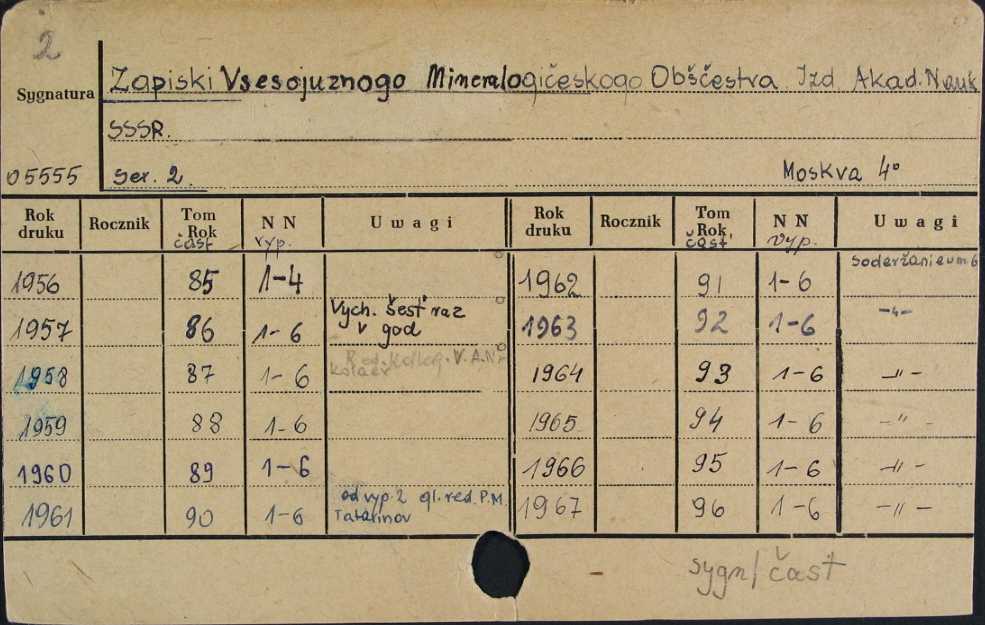 2
Sygnatura
Zapiski Vsesojuznogo Mineralogičeskogo Obščestva. Izd. Akad. Nauk
SSSR.
05555 Ser. 2. Moskva 4°
Rok druku Rocznik Tom Rok čast' N N vyp. Uwagi Rok druku Rocznik Tom Rok čast' N N vyp. Uwagi
1956 85 1-4 1962 91 1-6 Soderžanie v um 6
1957 86 1-6 Vych. šest' raz v god 1963 92 1-6 -"-
1958 87 1-6 Red. kolleg. V.A. Nikolaev 1964 93 1-6 -"-
1959 88 1-6 1965 94 1-6 -"-
1960 89 1-6 1966 95 1-6 -"-
1961 90 1-6 od vyp. 2 gl. red. P.M. Tatarinov 1967 96 1-6 -"-
sygn/ čast